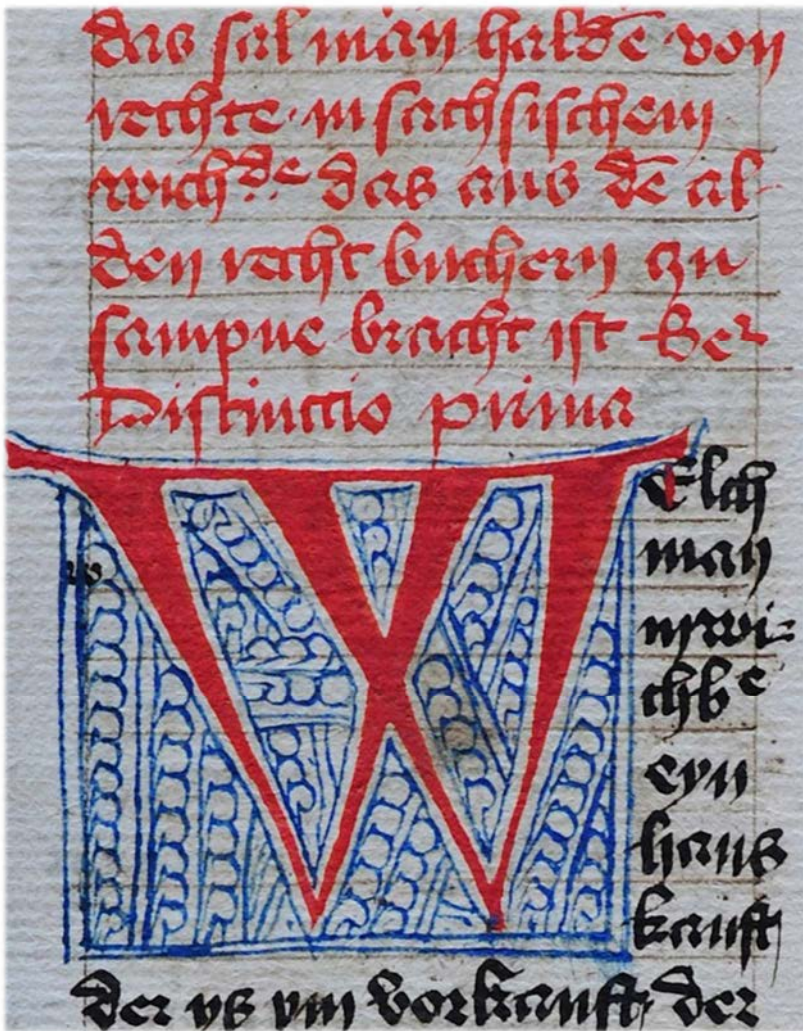 das sal man haldē von
rechte in sachsischem
wichᵈᵉ das aus dē al-
den recht buchern czu
sampne bracht ist
Distinctio prima
W Elch
man
ynwi-
chbᵉ
eyn
haus
kauft
der vs ym vorkauft der